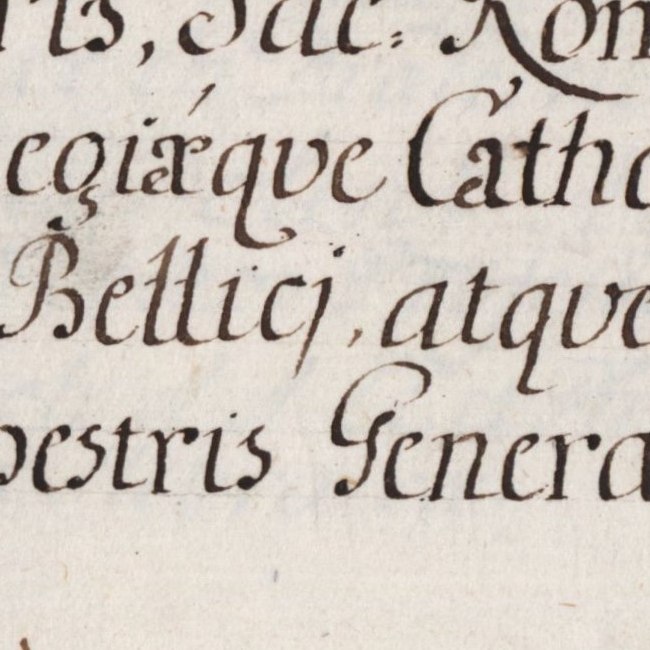 Sac: Rom
egiæ´qve Catho
Bellicj, atque
pestris Genera